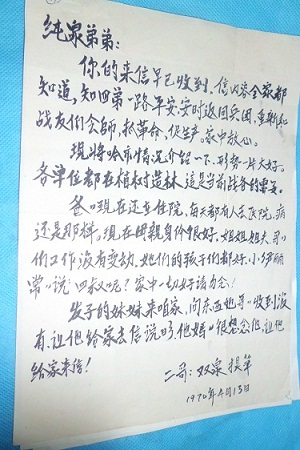 纯泉弟弟:
你的来信早已收到,信内容全家都
知道,知四弟一路平安,安时返回兵团,重新和
战友们会师,抓革命,促生产,家中放心。
现将哈市情况介绍一下,形势一片大好。
各单位都在植树造林,这是当前战备的需要。
爸"现在还在住院,每天都有人去医院,病
还是那样,现在母亲身体很好。姐姐姐夫哥"
们工作没有变动,她们的孩子们都好,小伊丽
常"说四叔呢?家中一切好请勿念!
发子的妹妹来咱家,问东西他哥"收到没
有,让他给家去信说明,他妈"很想念他,让他
给家来信!
二哥:双泉 提笔
1970年4月13日